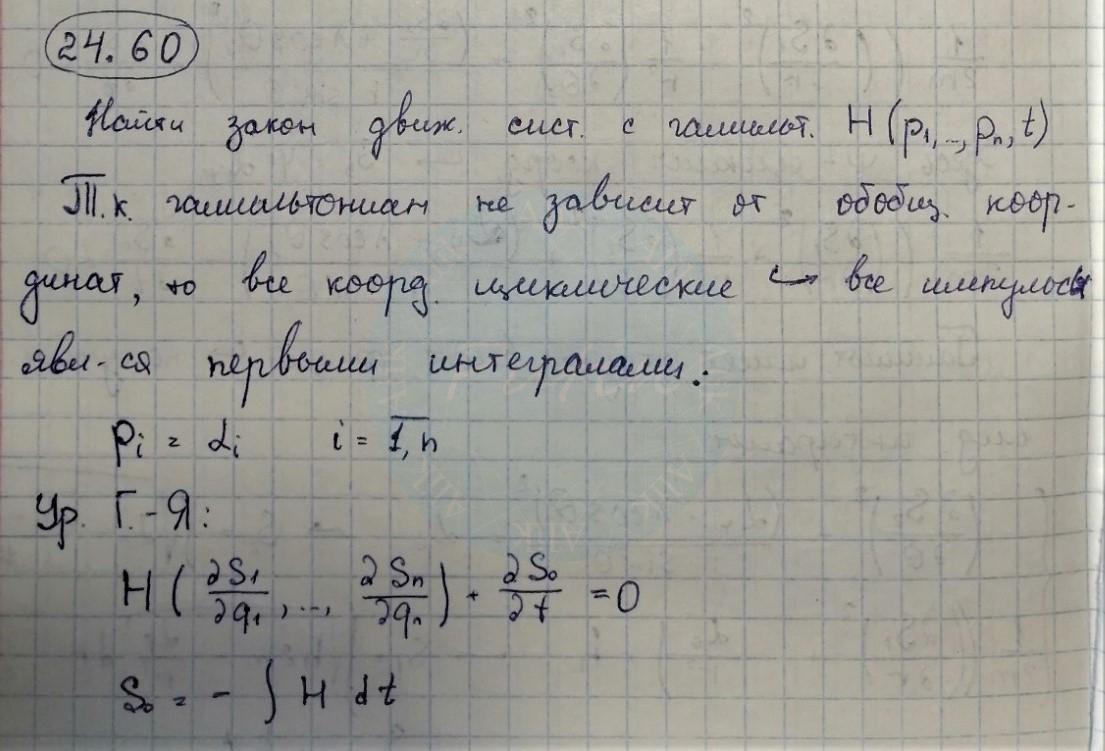 24.60
Найти закон движ. сист. с гамильт. H(p₁,..,pₙ,t)
Т.к. гамильтониан не зависит от обобщ. коор-
динат, то все коорд. циклические ↪ все импульсы
явл-ся первыми интегралами.
pᵢ = αᵢ i = 1,n
Ур. Г.-Я:
H(∂S₁/∂q₁,..., ∂Sₙ/∂qₙ) + ∂S₀/∂t = 0
S₀ = - ∫ H dt